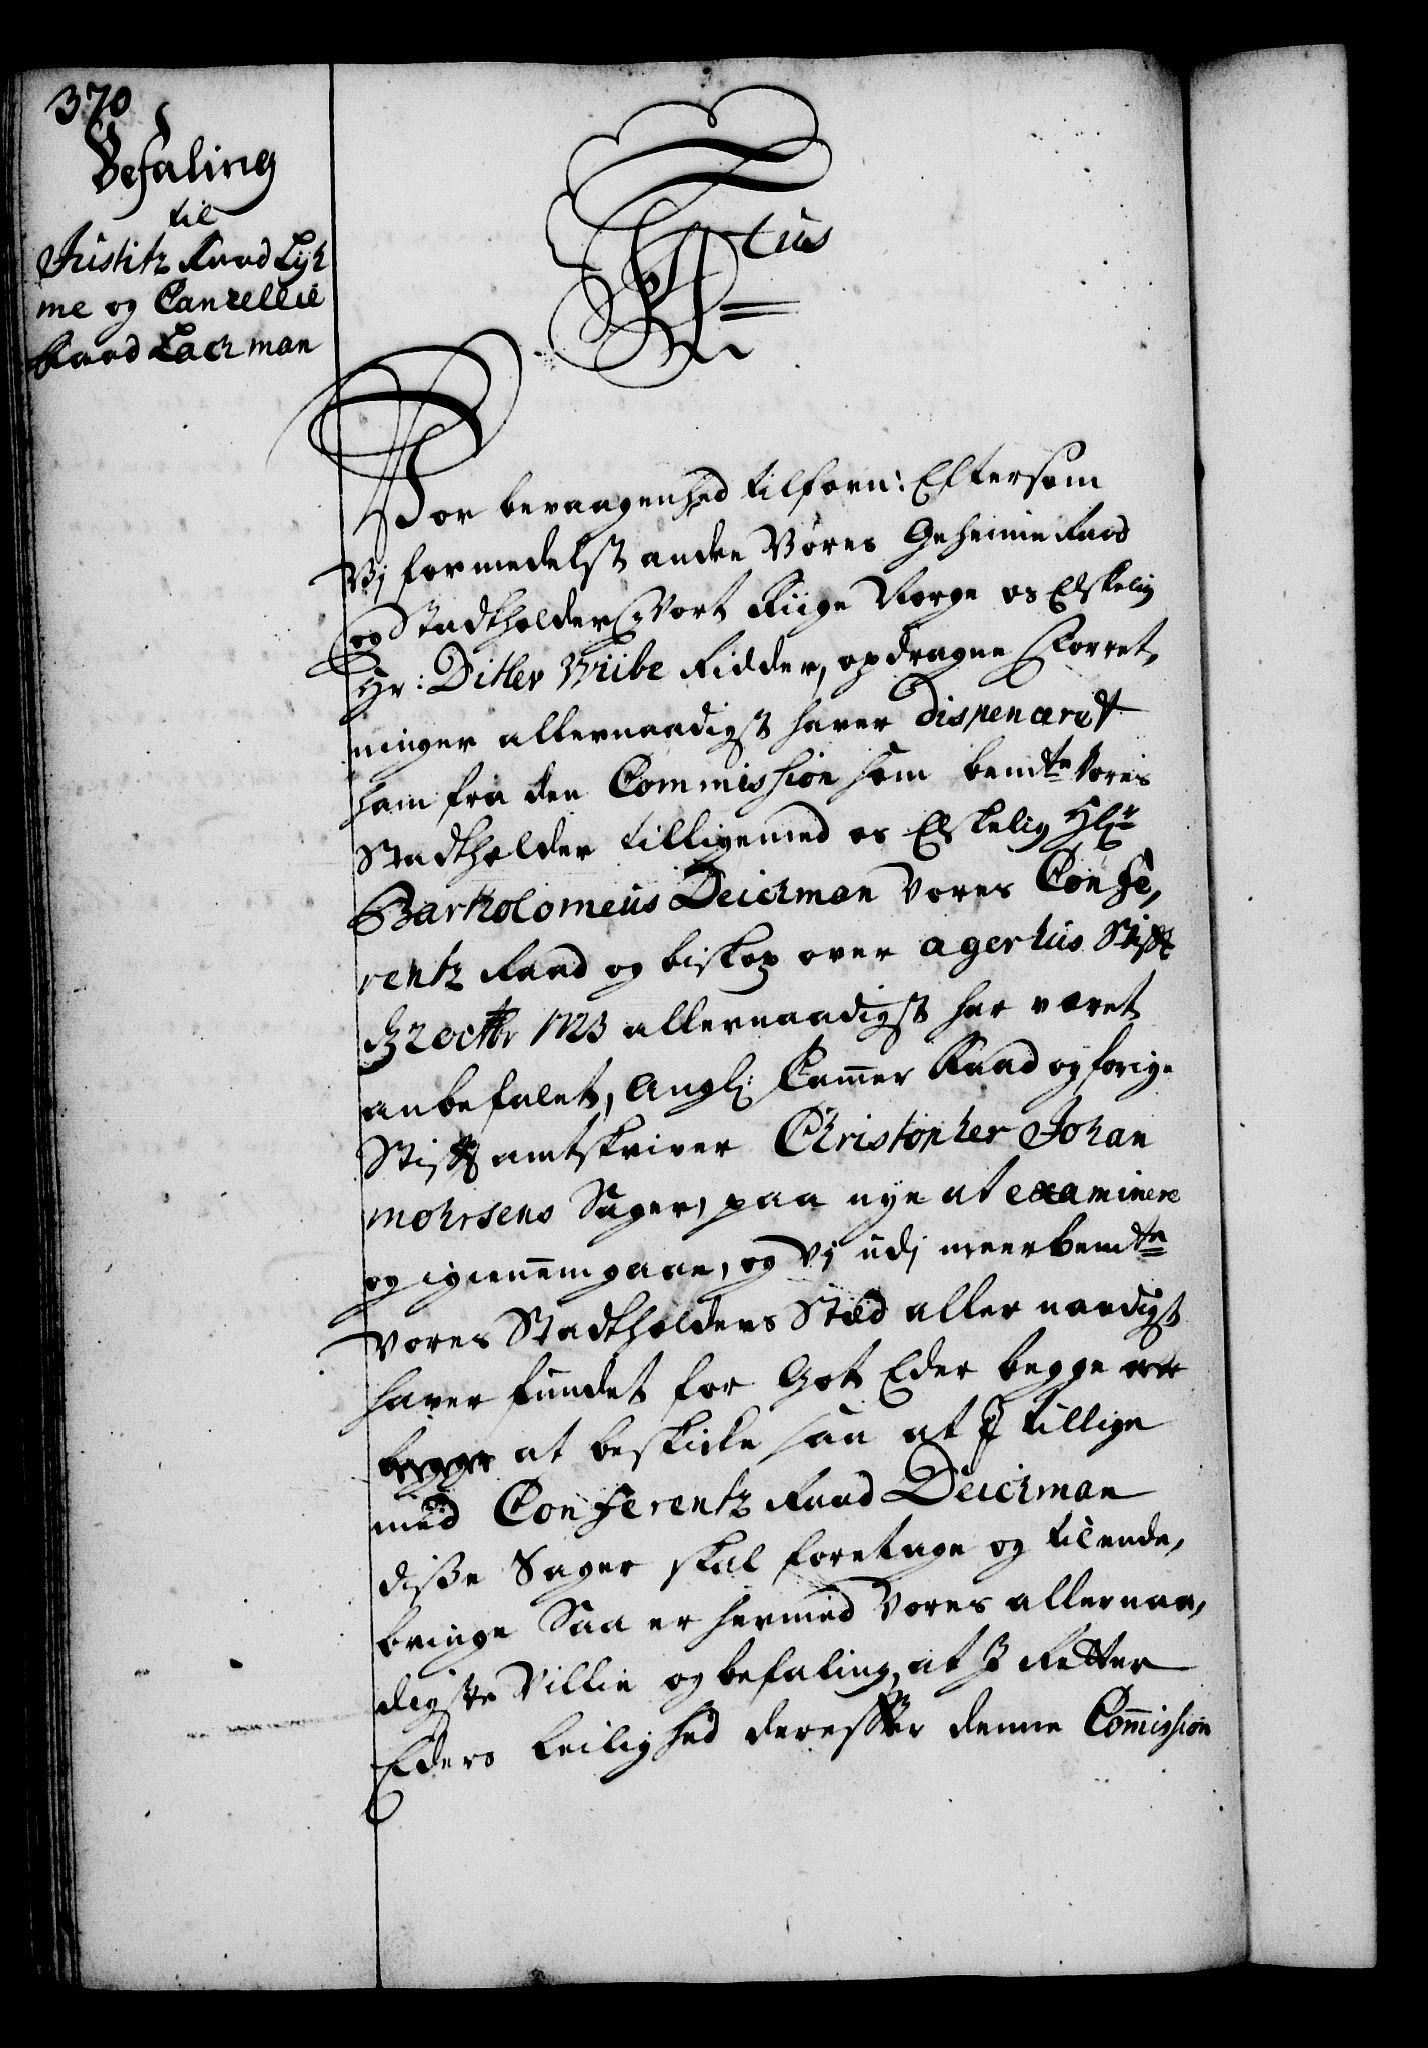 370
Befaling
til
Justitz Raad Lyh
me og Cancellie
Raad Lachman
F4tus
Vor bevaagenhed tilforn: Eftersom
Vj formedelst andre Vores Geheime Raad
og Stadtholder i Vort Riige Norge os Elskelig
Hr: Ditlev Wiibe Ridder, opdragne Forret,
ninger allernaadigst haver dispenceret
ham fra den Commission som bemte Vores
Stadtholder tilligemed os Elskelig Hr
Bartholomeus Deichman Vores Confe,
rentz Raad og biskop over agerhus Stift
22 octbr 1723 allernaadigst har været
anbefalet, Angl: Camer Raad og forige
Stiftamtskriver Christopher Johan
mohrsens Sager, paa nye at examinere
og igiennemgaae, og Vj udj meerbemte
Vores Stadtholders Stæd aller naadigst
haver fundet for Got Eder begge
at beskicke saa at J tillige
med Conferentz Raad Deichman
disse Sager skal foretage og tilende,
bringe Saa er hermed Vores allernaa,
digste Villie og befaling, at J Retter
Eders Leilighed derefter denne Commission